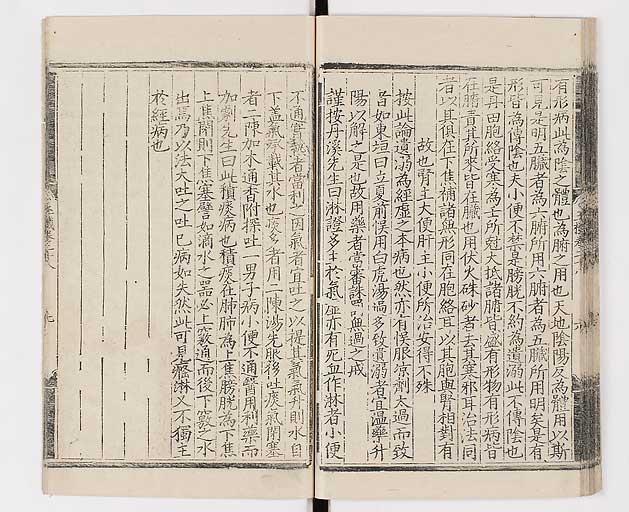 有形病此為陰之體也為腑之用也天地陰陽反為體用以斯
可見是明五臟者為六腑所用六腑者為五臟所用明矣是有
形皆為傳陰也夫小便不禁是膀胱不約為遺溺此不傳陰也
是丹田胞絡受寒為士所尅大抵諸腑皆盛有形物有形病皆
在腑責其所來皆在臟也用伏火硃砂者去其寒邪耳治法同
者以其俱在下焦補諸無形同在胞絡耳以其胞與腎相對有
故也腎主大便肝主小便所治安得不殊
按此論遺溺為經虛之本病也然亦有悞服凉劑太過而致
者如東垣曰立夏前悞用白虎湯過多致遺溺者宜温藥升
陽以解之是也故用藥者當審誅罰無過之戒
謹按丹溪先生曰淋證多主於氣虛亦有死血作淋者小便
不通實熱者當利之因氣者宜吐之以提其氣氣升則水自
下盖氣承載其水也痰多者用二陳湯先服後吐痰氣閉塞
者二陳加木通香附探吐一男子病小便不通醫用利藥而
加劇先生曰此積痰病也積痰在肺肺為上焦膀胱為下焦
上焦閉則下焦塞譬如滴水之器必上竅通而後下竅之水
出焉乃以法大吐之吐已病如失然此可見癃淋又不獨主
於經病也